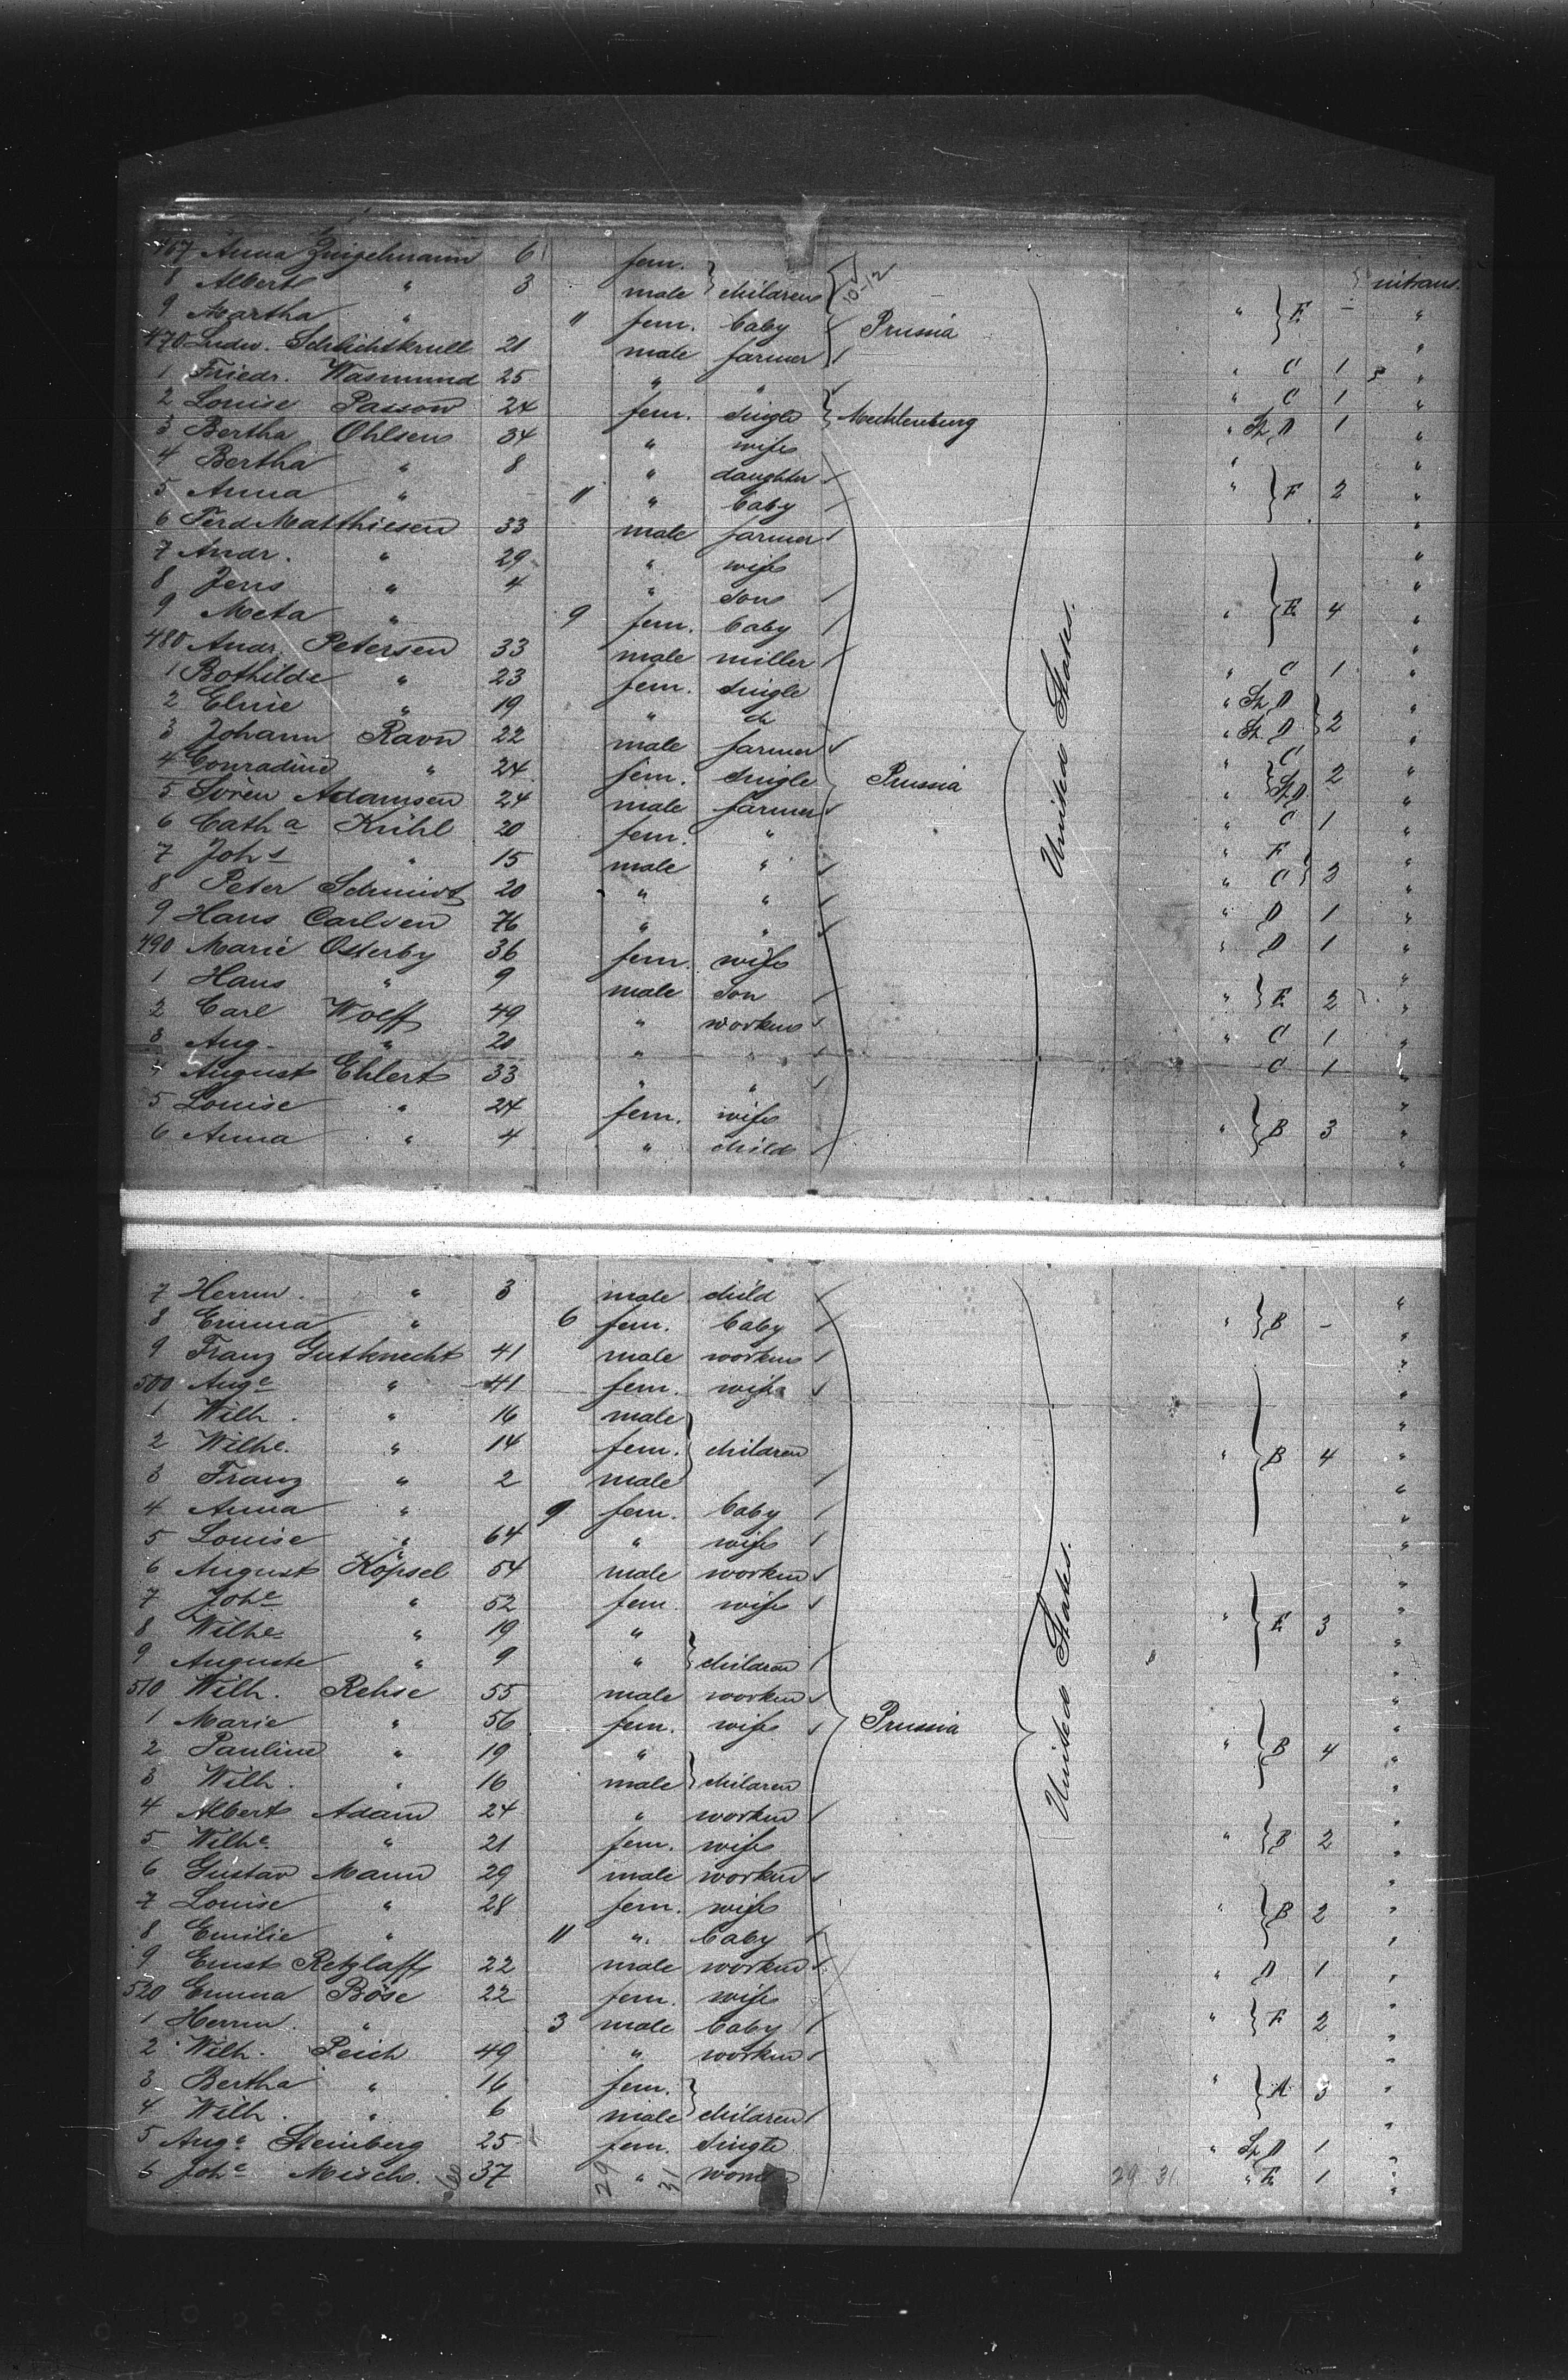 467 Anna Zingelmann 6 fem.
8 Albert " 3 male } children 10-12 intrans.
9 Martha " 11 fem. baby Prussia " } E - "
470 Ludw. Schlichtkrull 21 male farmer "
1 Friedr. Wasmund 25 " " " C 1 "
2 Louise Passow 24 fem. single } Mecklenburg " C 1 "
3 Bertha Ohlsen 34 " wife " Sp. D 1 "
4 Bertha " 8 " daughter " "
5 Anna " 11 " baby " } E 2 "
6 Ferd. Matthiesen 33 male farmer "
7 Andr. " 29 " wife "
8 Jens " 4 " son "
9 Meta " 9 fem. baby " } E 4 "
480 Andr. Petersen 33 male miller "
1 Bothilde " 23 fem. single " C 1 "
2 Eline " 19 " do " Sp. D "
3 Johann Ravn 22 male farmer " Sp. D } 2 "
4 Conradine " 24 fem. single Prussia " C } 2 "
5 Sören Adamsen 24 male farmer " Sp D "
6 Catha Krihl 20 fem. " " C 1 "
7 Johs " 15 male " " F "
8 Peter Schmidt 20 " " " C } 2 "
9 Hans Carlsen 76 " " " D 1 "
490 Marie Osterby 36 fem. wife " D 1 "
1 Hans " 9 male son " } E 2 "
2 Carl Wolff 49 " workm "
3 Aug. " 20 " " " C 1 "
" August Ehlert 33 " " C 1 "
5 Louise " 24 fem. wife "
6 Anna " 4 " child " } B 3 "
United States.
7 Herm. " 3 male child "
8 Emma " 6 fem. baby " } B - "
9 Franz Gutknecht 41 male workm "
500 Auge " 41 fem. wife "
1 Wilh. " 16 male "
2 Wilhe. " 14 fem. } children " } B 4 "
3 Franz " 2 male "
4 Anna " 9 fem. baby "
5 Louise " 64 " wife "
6 August Köpsel 54 male workm "
7 Johe " 52 fem. wife "
8 Wilhe " 19 " " } E 3 "
9 Auguste " 9 " } children "
510 Wilh. Rehse 55 male workm "
1 Marie " 56 fem. wife Prussia "
2 Pauline " 19 " " } B 4 "
3 Wilh. " 16 male } children "
4 Albert Adam 24 " workm "
5 Wilhe " 21 fem. wife " } B 2 "
6 Gustav Mann 29 male workm "
7 Louise " 28 fem. wife " } B 2 "
8 Emilie " 11 " baby "
9 Ernst Retzlaff 22 male workm " D 1 "
520 Emma Böse 22 fem. wife "
1 Herm. " 3 male baby " } E 2 "
2 Wilh. Peich 49 " workm "
3 Bertha " 16 fem. " } A 3 "
4 Wilh. " 6 male } children "
5 Auge Steinberg 25 fem. single " Sp D 1 "
6 Johe Misch. 37 " 29 31 29 31. " E 1 "
United States.